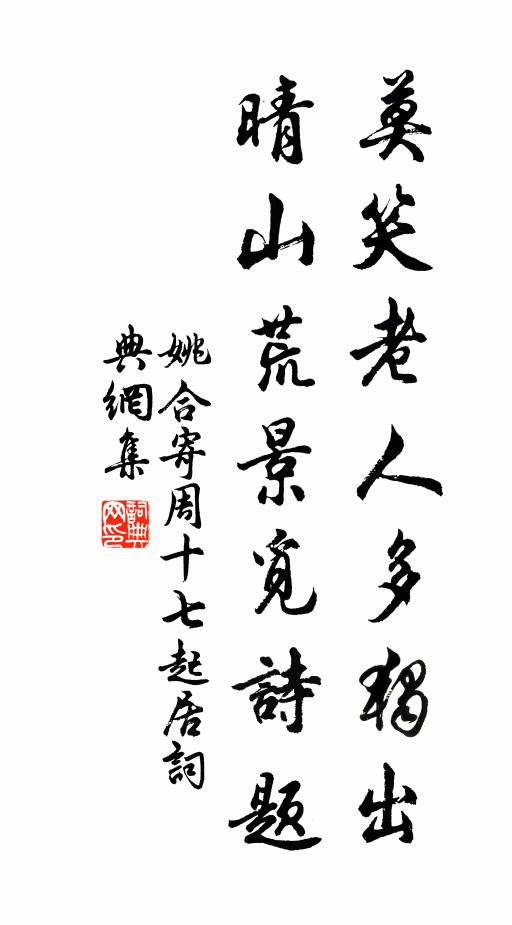 莫笑老人多獨出
晴山荒景覓詩題
姚合寄周十七起居詞
典網集
詞典
网印